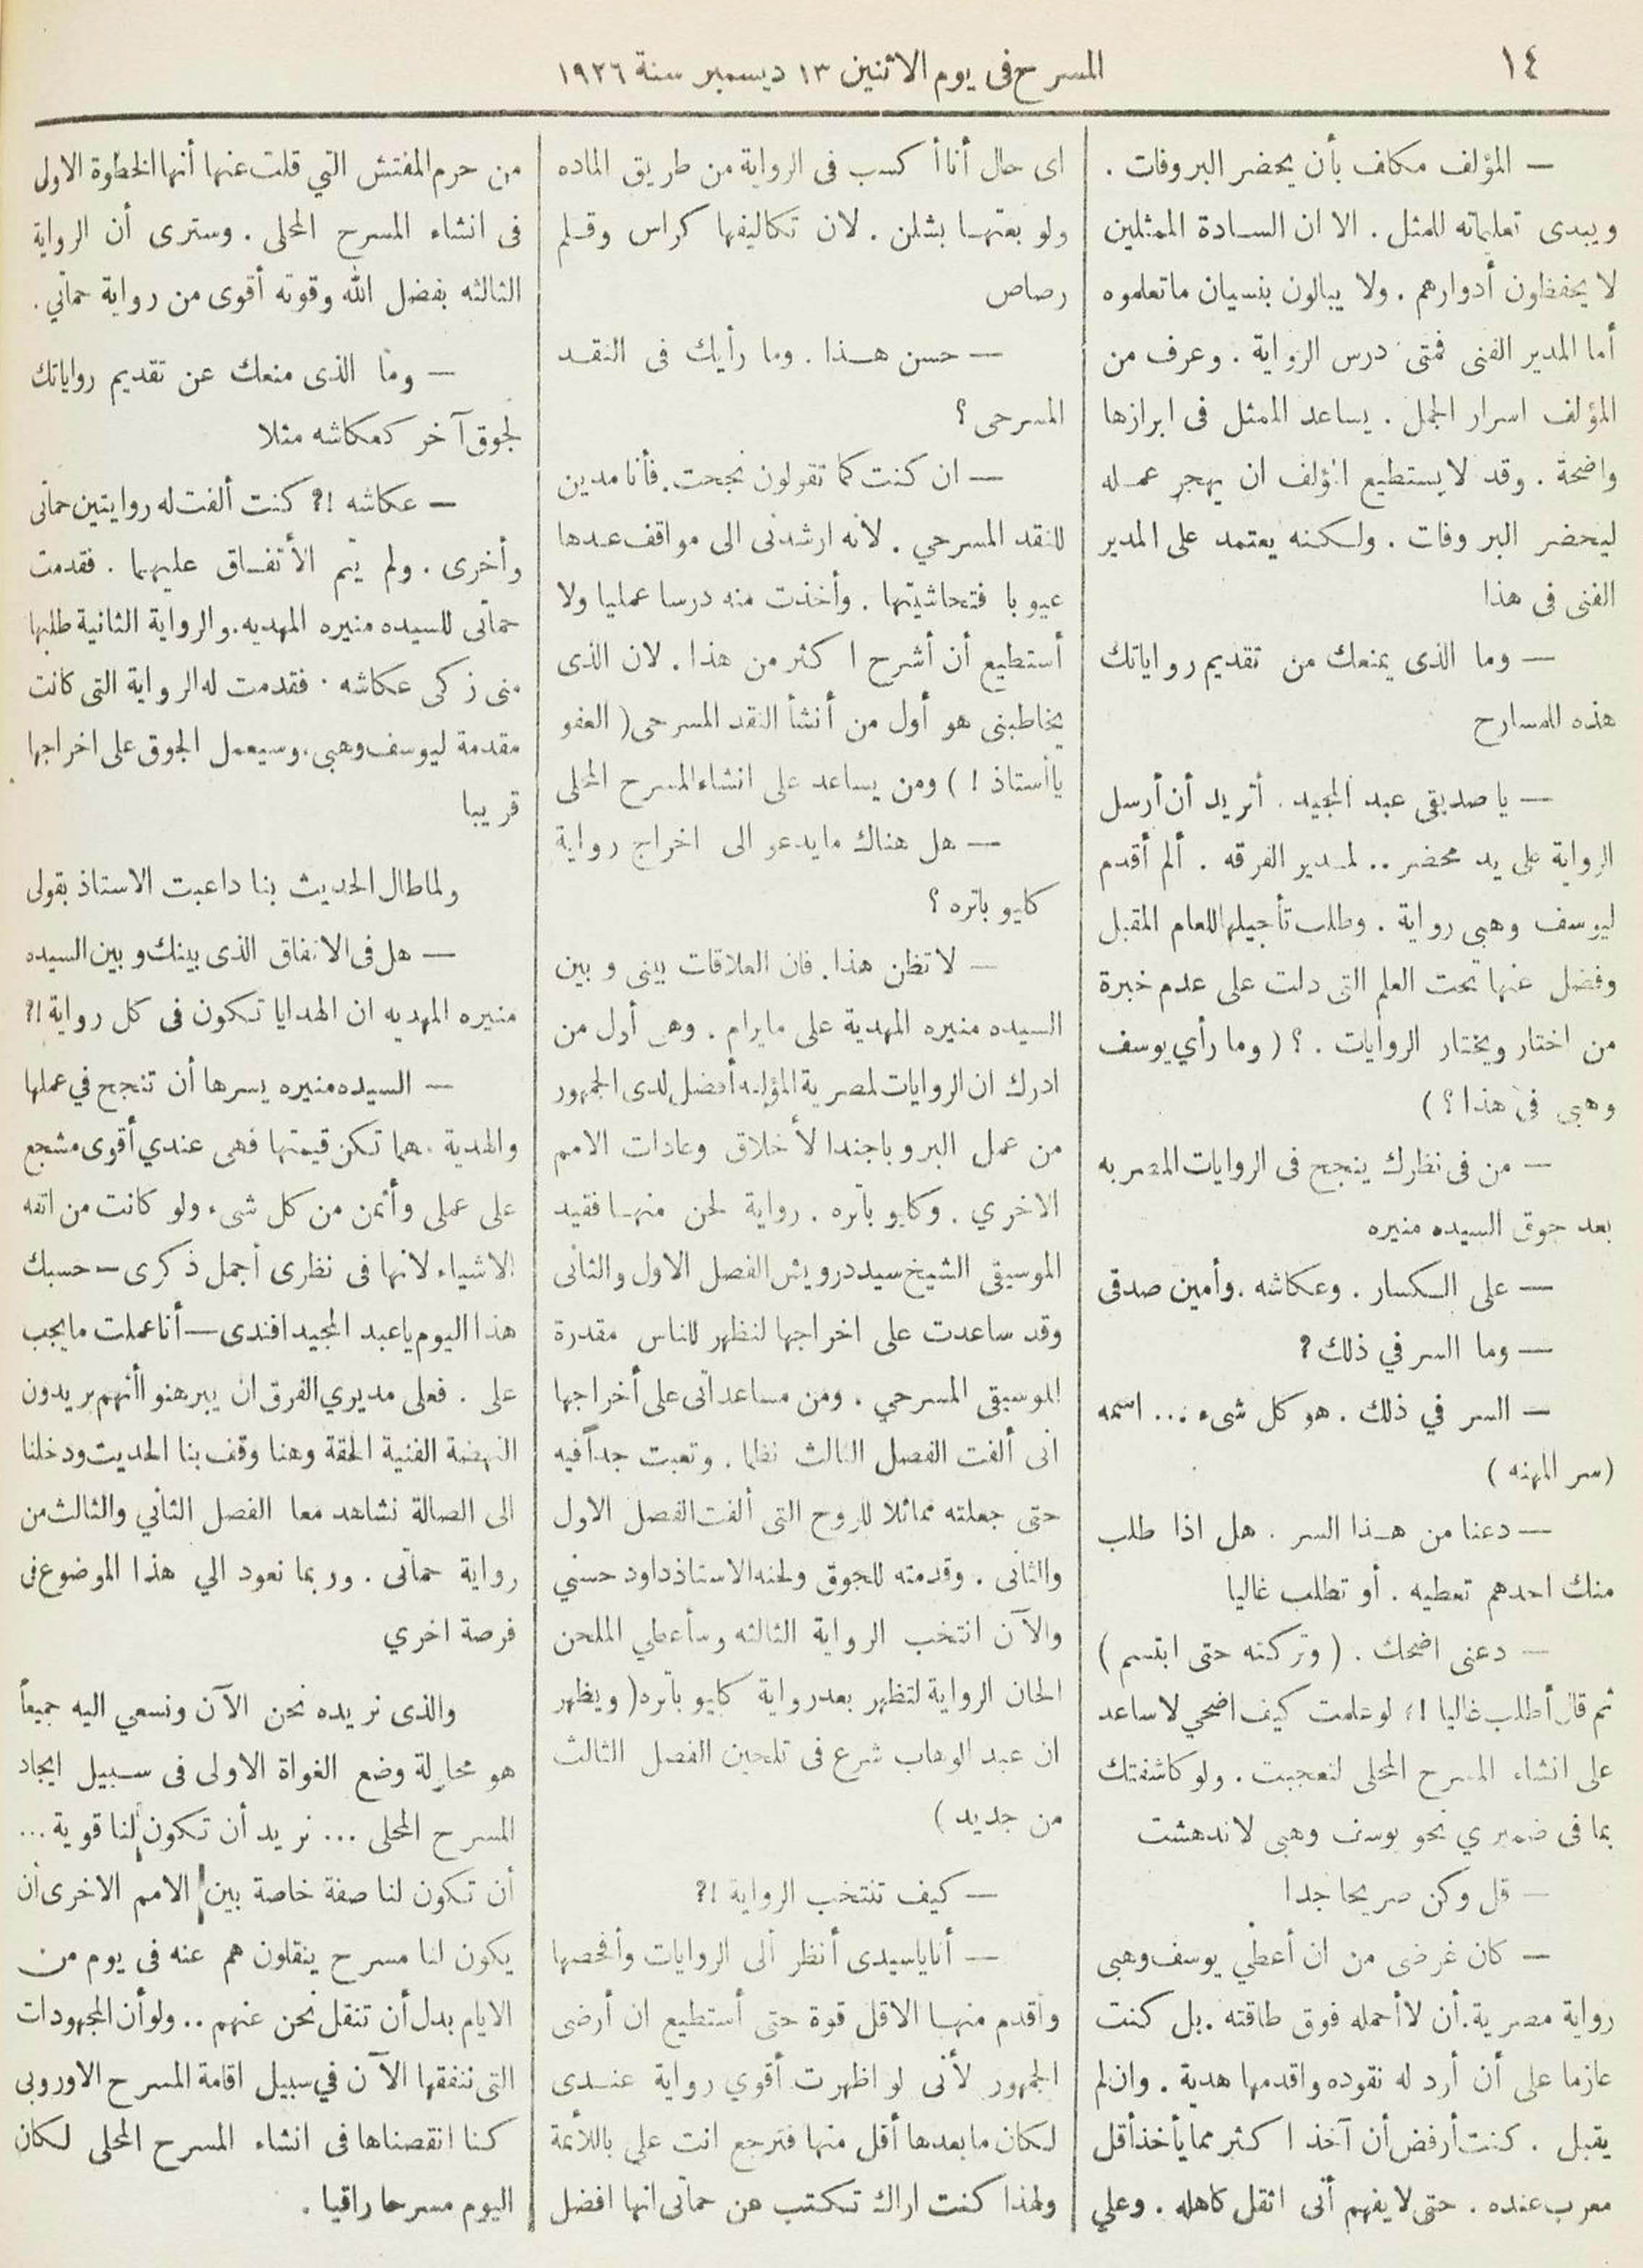 ١٤
المسرح فى يوم الاثنين ١٣ ديسمبر سنة ١٩٢٦
— المؤلف مكلف بأن يحضر البروفات .
ويبدى تعليماته للمثل . الا ان السادة الممثلين
لا يحفظون أدوارهم . ولا يبالون بنسيان ماتعلموه
أما المدير الفنى فمتى درس الرواية . وعرف من
المؤلف اسرار الجمل . يساعد الممثل فى ابرازها
واضحة . وقد لا يستطيع المؤلف ان يهجر عمله
ليحضر البروفات . ولكنه يعتمد على المدير
الفنى فى هذا
— وما الذى يمنعك من تقديم رواياتك
هذه للمسارح
— يا صديقى عبد المجيد . أتريد أن أرسل
الرواية على يد محضر .. لمدير الفرقه . ألم أقدم
ليوسف وهبى رواية . وطلب تأجيلها للعام المقبل
وفضل عنها تحت العلم التى دلت على عدم خبرة
من اختار ويختار الروايات . ؟ ( وما رأي يوسف
وهبى فى هذا ؟ )
— من فى نظرك ينجح فى الروايات المصريه
بعد جوق السيده منيره
— على الكسار . وعكاشه . وأمين صدقى
— وما السر في ذلك ؟
— السر في ذلك . هو كل شىء ... اسمه
( سر المهنه )
— دعنا من هذا السر . هل اذا طلب
منك احدهم تعطيه . أو تطلب غاليا
— دعنى اضحك . ( وتركته حتى ابتسم )
ثم قال أطلب غاليا !؟ لو علمت كيف اضحي لاساعد
على انشاء المسرح المحلى لتعجبت . ولو كاشفتك
بما فى ضميري نحو يوسف وهبى لاندهشت
— قل وكن صريحا جدا
— كان غرضى من ان أعطي يوسف وهبى
رواية مصرية . أن لا أحمله فوق طاقته . بل كنت
عازما على أن أرد له نقوده واقدمها هدية . وان لم
يقبل . كنت أرفض أن آخذ ا كثر مما يأخذ أقل
معرب عنده . حتى لا يفهم أنى اثقل كاهله . وعلي
اى حال أنا أ كسب فى الرواية من طريق الماده
ولو بعتها بشلن . لان تكاليفها كراس وقلم
رصاص
— حسن هذا . وما رأيك فى النقد
المسرحى ؟
— ان كنت كما تقولون نجحت . فأنا مدين
للنقد المسرحي . لانه ارشدنى الى مواقف عدها
عيوبا فتحاشيتها . وأخذت منه درسا عمليا ولا
أستطيع أن أشرح ا كثر من هذا . لان الذى
يخاطبنى هو أول من أنشأ النقد المسرحى ( العفو
ياأستاذ ! ) ومن يساعد على انشاء المسرح المحلى
— هل هناك مايدعو الى اخراج رواية
كليو باتره ؟
— لا تظن هذا . فان العلاقات بينى و بين
السيده منيره المهدية على مايرام . وهى أول من
ادرك ان الروايات المصرية المؤلفه أفضل لدى الجمهور
من عمل البروباجندا لأخلاق وعادات الامم
الاخري . وكليو باتره . رواية لحن منها فقيد
الموسيقى الشيخ سيد درويش الفصل الاول والثانى
وقد ساعدت على اخراجها لتظهر للناس مقدرة
الموسيقى المسرحي . ومن مساعداتى على أخراجها
انى ألفت الفصل الثالث نظما . وتعبت جداً فيه
حتى جعلته مماثلا للروح التى ألفت الفصل الاول
والثانى . وقدمته للجوق ولحنه الاستاذ داود حسني
والآن انتخب الرواية الثالثه وسأعطي الملحن
الحان الرواية لتظهر بعد رواية كليو باتره ( ويظهر
ان عبد الوهاب شرع فى تلحين الفصل الثالث
من جديد )
— كيف تنتخب الرواية !؟
— أنا ياسيدى أنظر ألى الروايات وأفحصها
واقدم منها الاقل قوة حتى أستطيع ان أرضى
الجمهور لأنى لو اظهرت أقوي رواية عندى
لكان مابعدها أقل منها فترجع انت علي باللأئمة
ولهذا كنت اراك تكتب عن حماتى انها افضل
من حرم المفتش التي قلت عنها أنها الخطوة الاولى
فى انشاء المسرح المحلى . وسترى أن الرواية
الثالثه بفضل الله وقوته أقوى من رواية حماتي .
— وما الذى منعك عن تقديم رواياتك
لجوق آخر كعكاشه مثلا
— عكاشه !؟ كنت ألفت له روايتين حماتى
وأخرى . ولم يتم الأتفاق عليهما . فقدمت
حماتى للسيده منيره المهديه . والرواية الثانية طلبها
منى زكى عكاشه . فقدمت له الرواية التى كانت
مقدمة ليوسف وهبى ، وسيعمل الجوق على اخراجها
قريبا
ولما طال الحديث بنا داعبت الاستاذ بقولى
— هل فى الاتفاق الذى بينك و بين السيده
منيره المهديه ان الهدايا تكون فى كل رواية !؟
— السيده منيره يسرها أن تنجح في عملها
والهدية مهما تكن قيمتها فهى عندي أقوى مشجع
على عملى وأثمن من كل شىء ولو كانت من اتفه
الاشياء لانها فى نظرى أجمل ذكرى — حسبك
هذا اليوم ياعبد المجيد افندى — أنا عملت مايجب
على . فعلى مديري الفرق ان يبرهنوا أنهم يريدون
النهضة الفنية الحقة وهنا وقف بنا الحديت ودخلنا
الى الصالة نشاهد معا الفصل الثاني والثالث من
رواية حماتى . وربما نعود الي هذا الموضوع فى
فرصة اخري
والذى نريده نحن الآن ونسعي اليه جميعاً
هو محاولة وضع الغواة الاولى فى سبيل ايجاد
المسرح المحلى ... نريد أن تكون لنا قوية ...
أن تكون لنا صفة خاصة بين الامم الاخرى أن
يكون لنا مسرح ينقلون هم عنه فى يوم من
الايام بدل أن تنقل نحن عنهم .. ولو أن المجهودات
التى ننفقها الآن في سبيل اقامة المسرح الاوروبى
كنا انقصناها فى انشاء المسرح المحلى لكان
اليوم مسرحا راقيا .